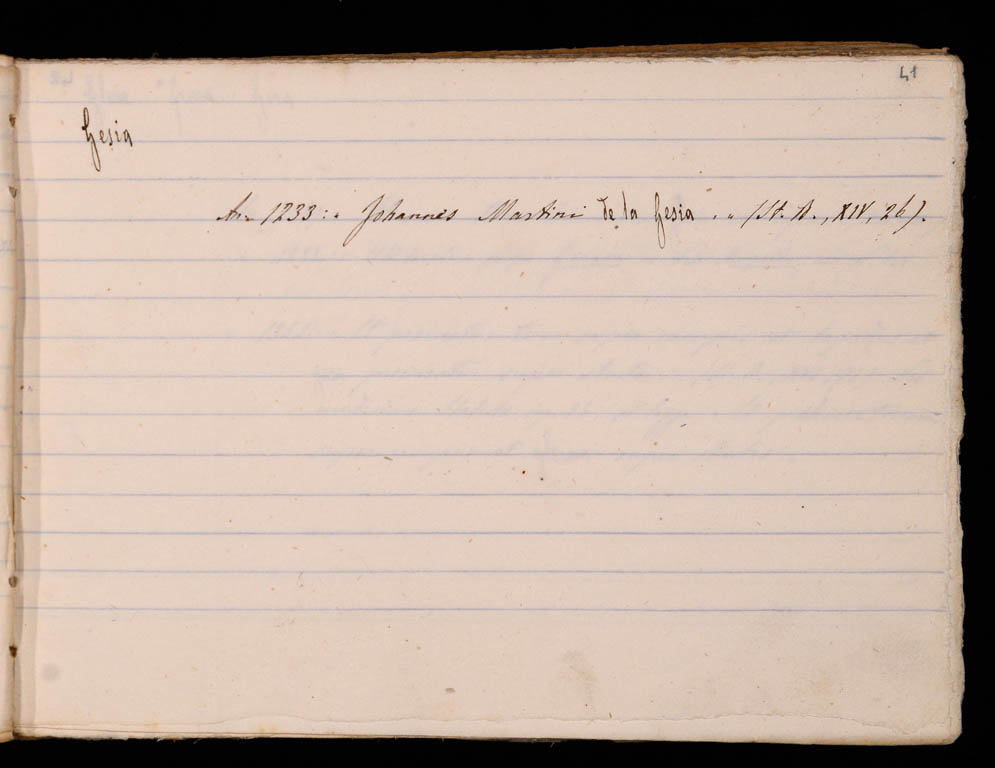 41
Gesia
An. 1233: „ Johannes Martini de la Gesia . „ (St. A., XIV, 26).